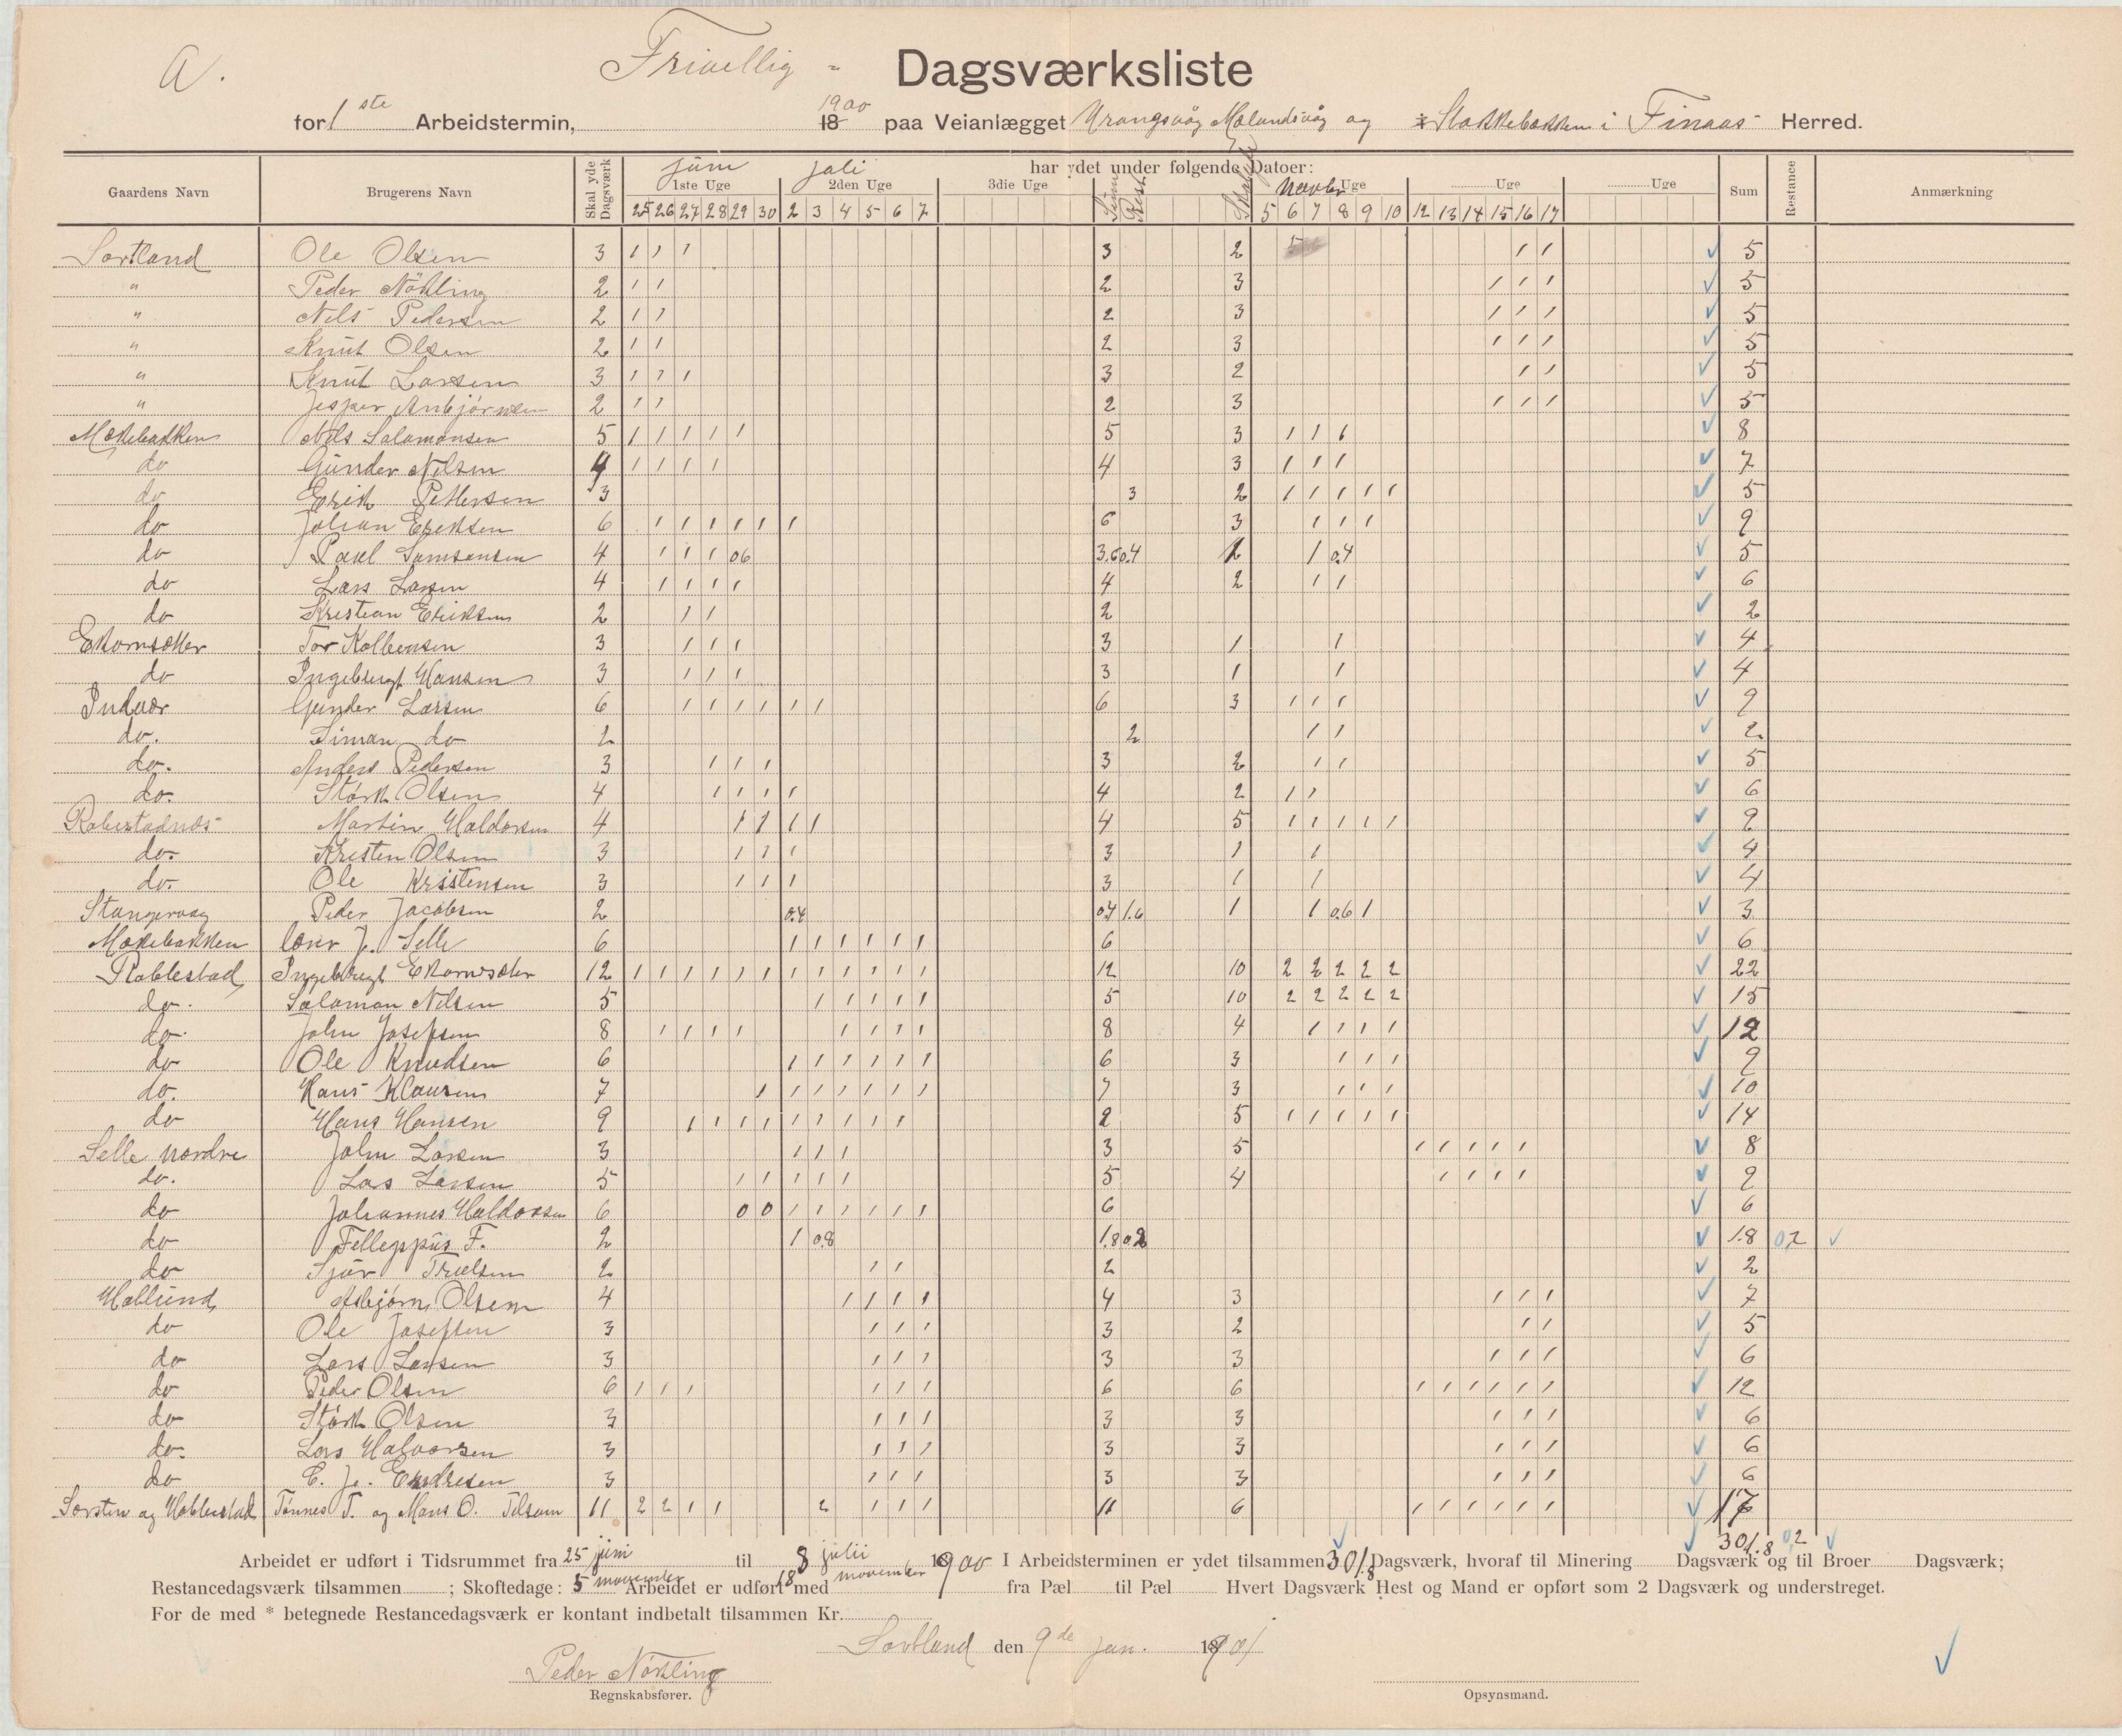 A.
Frivellig - Dagsværksliste
for 1ste Arbeidstermin, 18 1900 paa Veianlægget Urangsvåg Mælandsvåg og Stokkebækken i Finaas Herred.
Gaardens Navn Brugerens Navn Skal yde Dagsværk har ydet under følgende Datoer: Sum Restance Anmærkning
juni 1ste Uge juli 2den Uge 3die Uge Sum Rest Skal yde Novbr Uge Uge Uge
25 26 27 28 29 30 2 3 4 5 6 7 5 6 7 8 9 10 12 13 14 15 16 17
Sortland Ole Olsen 3 1 1 1 3 2 1 1 5
" Peder Nökling 2 1 1 2 3 1 1 1 5
" Nils Pedersen 2 1 1 2 3 1 1 1 5
" Knut Olsen 2 1 1 2 3 1 1 1 5
" Knut Larsen 3 1 1 1 3 2 1 1 5
" Jesper Anbjörnsen 2 1 1 2 3 1 1 1 5
Mækebakken Nils Salamonsen 5 1 1 1 1 1 5 3 1 1 1 8
do Gunder Nilsen 4 1 1 1 1 4 3 1 1 1 7
do Erik Pettersen 3 3 2 1 1 1 1 1 5
do Johan Eriksen 6 1 1 1 1 1 1 6 3 1 1 1 9
do Paul Samsonsen 4 1 1 1 06 3.6 0.4 1 1 0.4 5
do Lars Larsen 4 1 1 1 1 4 2 1 1 6
do Kristian Eriksen 2 1 1 2 2
Ekornsæter Tor Kolbensen 3 1 1 1 3 1 1 4
do Ingebrigt Hansen 3 1 1 1 3 1 1 4
Indvær Gunder Larsen 6 1 1 1 1 1 1 6 3 1 1 1 9
do. Siman do 2 2 1 1 2
do. Anders Pedersen 3 1 1 1 3 2 1 1 5
do. Størk Olsen 4 1 1 1 1 4 2 1 1 6
Martin Haldorsen 4 1 1 1 1 4 5 1 1 1 1 1 9
do. Kristen Olsen 3 1 1 1 3 1 1 4
do. Ole Kristensen 3 1 1 1 3 1 1 4
Stangervag Peder Jacobsen 2 0.4 0.4 1.6 1 1 0.6 1 3
Mækebakken J. Selle 6 1 1 1 1 1 1 6 6
Rablestad Ingebrigt Ekornsæter 12 1 1 1 1 1 1 1 1 1 1 1 1 12 10 2 2 2 2 2 22
do. Salamon Nilsen 5 1 1 1 1 1 5 10 2 2 2 2 2 15
do. John Josefsen 8 1 1 1 1 1 1 1 1 8 4 1 1 1 1 12
do Ole Knudsen 6 1 1 1 1 1 1 6 3 1 1 1 9
do. Hans Klausen 7 1 1 1 1 1 1 1 7 3 1 1 1 10
do Hans Hansen 9 1 1 1 1 1 1 1 1 1 9 5 1 1 1 1 1 14
Selle nordre John Larsen 3 1 1 1 3 5 1 1 1 1 1 8
do. Lars Larsen 5 1 1 1 1 1 5 4 1 1 1 1 9
do Johannes Haldorsen 6 0 0 1 1 1 1 1 1 6 6
do Felleppus F. 2 1 0.8 1.8 0.2 1.8 0.2
do Sjur Truelsen 2 1 1 2 2
Asbjørn Olsen 4 1 1 1 1 4 3 1 1 1 7
do Ole Josefsen 3 1 1 1 3 2 1 1 5
do Lars Larsen 3 1 1 1 3 3 1 1 1 6
do Peder Olsen 6 1 1 1 1 1 1 6 6 1 1 1 1 1 1 12
do Størk Olsen 3 1 1 1 3 3 1 1 1 6
do. Lars Halvorsen 3 1 1 1 3 3 1 1 1 6
do C. J. Endresen 3 1 1 1 3 3 1 1 1 6
og Tønnes T. og Mons O. 11 2 2 1 1 2 1 1 1 11 6 1 1 1 1 1 1 17
301.8 0,2
Arbeidet er udført i Tidsrummet fra 25 juni til 8 julii 1900 I Arbeidsterminen er ydet tilsammen 301.8 Dagsværk, hvoraf til Minering Dagsværk og til Broer Dagsværk;
Restancedagsværk tilsammen ; Skoftedage: 5 november Arbeidet er udført med 18 november fra Pæl til Pæl Hvert Dagsværk Hest og Mand er opført som 2 Dagsværk og understreget.
For de med * betegnede Restancedagsværk er kontant indbetalt tilsammen Kr.
Sortland den 9de Jan. 1901
Peder Nökling
Regnskabsfører. Opsynsmand.